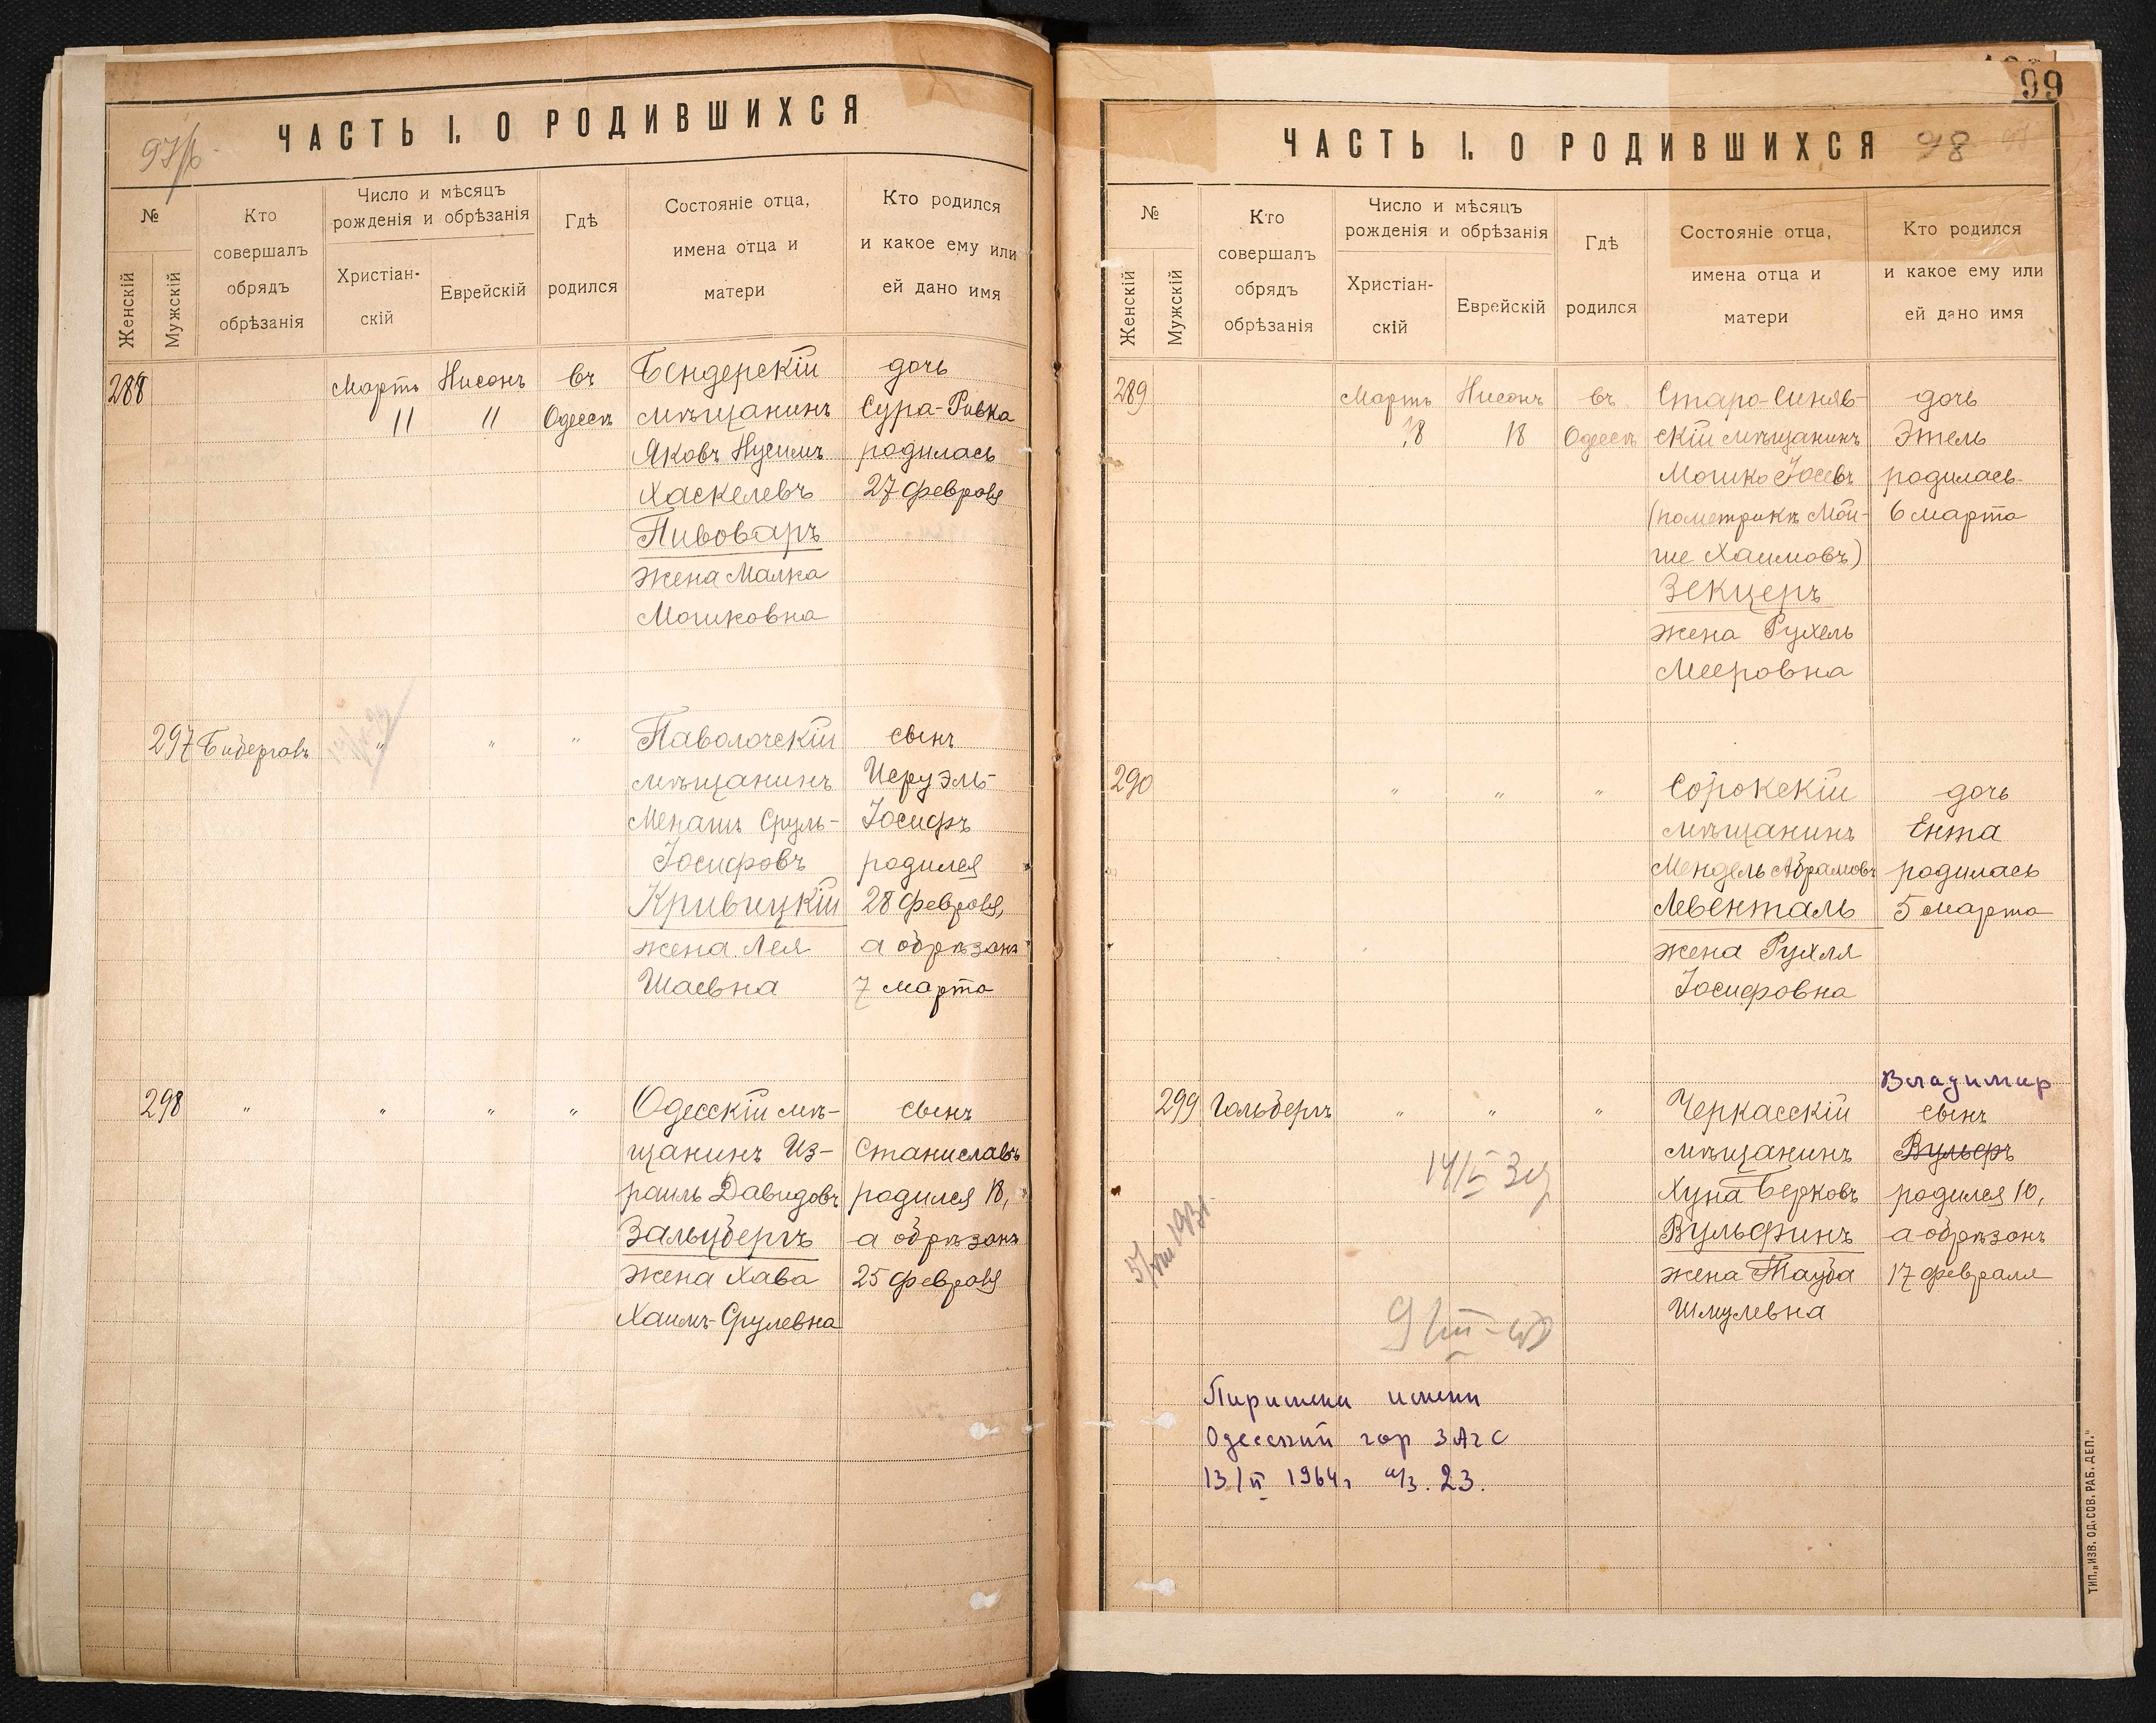 ЧАСТЬ I. О РОДИВШИХСЯ
№
Женскій
Мужскій
Кто
совершалъ
обрядъ
обрѣзанія
Число и мѣсяцъ
рожденія и обрѣзанія
Христіан-
скій
Еврейскій
Гдѣ
родился
Состояніе отца,
имена отца и
матери
Кто родился
и какое ему или
ей дано имя
288 Мартъ Нисонъ въ Бендерскій дочь
11 11 Одессѣ мѣщанинъ Сура-Ривка
Яковъ Нусимъ родилась
Хаскелевъ 27 февраля
Пивоваръ
жена Малка
Мошковна
297 " " " Паволочскій сынъ
мѣщанинъ Иеруэль-
Менашъ Сруль- Іосифъ
Іосифовъ родился
Кривицкій 28 февраля,
жена Лея а обрѣзанъ
Шаевна 7 марта
298 " " " " Одесскій мѣ- сынъ
щанинъ Из- Станиславъ
раиль Давидовъ родился 18,
Зальцбергъ а обрѣзанъ
жена Хава 25 февраля
Хаимъ-Срулевна
99
ЧАСТЬ I. О РОДИВШИХСЯ 98
№
Женскій
Мужскій
Кто
совершалъ
обрядъ
обрѣзанія
Число и мѣсяцъ
рожденія и обрѣзанія
Христіан-
скій
Еврейскій
Гдѣ
родился
Состояніе отца,
имена отца и
матери
Кто родился
и какое ему или
ей дано имя
289 Мартъ Нисонъ въ Старо-Синяв- дочь
18 18 Одессѣ скій мѣщанинъ Этель
Мошко Іосевъ родилась
(по метрикѣ Мой- 6 марта
ше Хаимовъ)
Зекцеръ
жена Рухель
Мееровна
290 " " " Сорокскій дочь
мѣщанинъ Ента
Мендель Абрамовъ родилась
Левенталь 5 марта
жена Рухля
Іосифовна
Владимир
299 Гольдбергъ " " " Черкасскій сынъ
мѣщанинъ Вульфъ
Хуна Берковъ родился 10,
Вульфинъ а обрѣзанъ
жена Тауба 17 февраля
Шмулевна
5/VIII 1931
имени
Одесский гор ЗАГС
13/II 1964г а/з. 23.
ТИП. „ИЗВ. ОД. СОВ. РАБ. ДЕП."